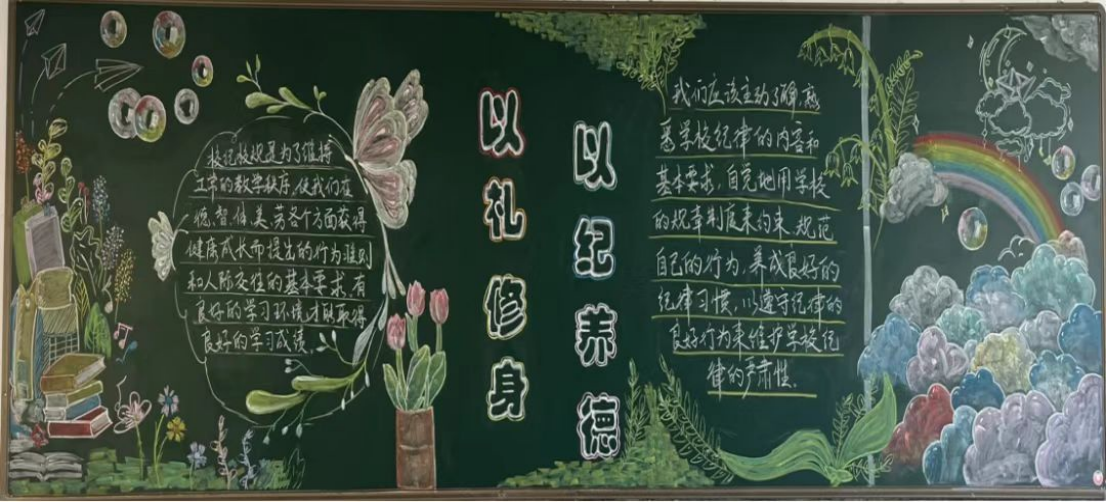 校纪校规是为了维持
正常的教学秩序,使我们在
德、智、体、美、劳各个方面获得
健康成长而提出的行为准则
和人际交往的基本要求,有
良好的学习环境才能取得
良好的学习成绩。
以礼修身
以纪养德
我们应该主动了解,熟
悉学校纪律的内容和
基本要求,自觉地用学校
的规章制度来约束、规范
自己的行为,养成良好的
纪律习惯,以遵守纪律的
良好行为来维护学校纪
律的严肃性。